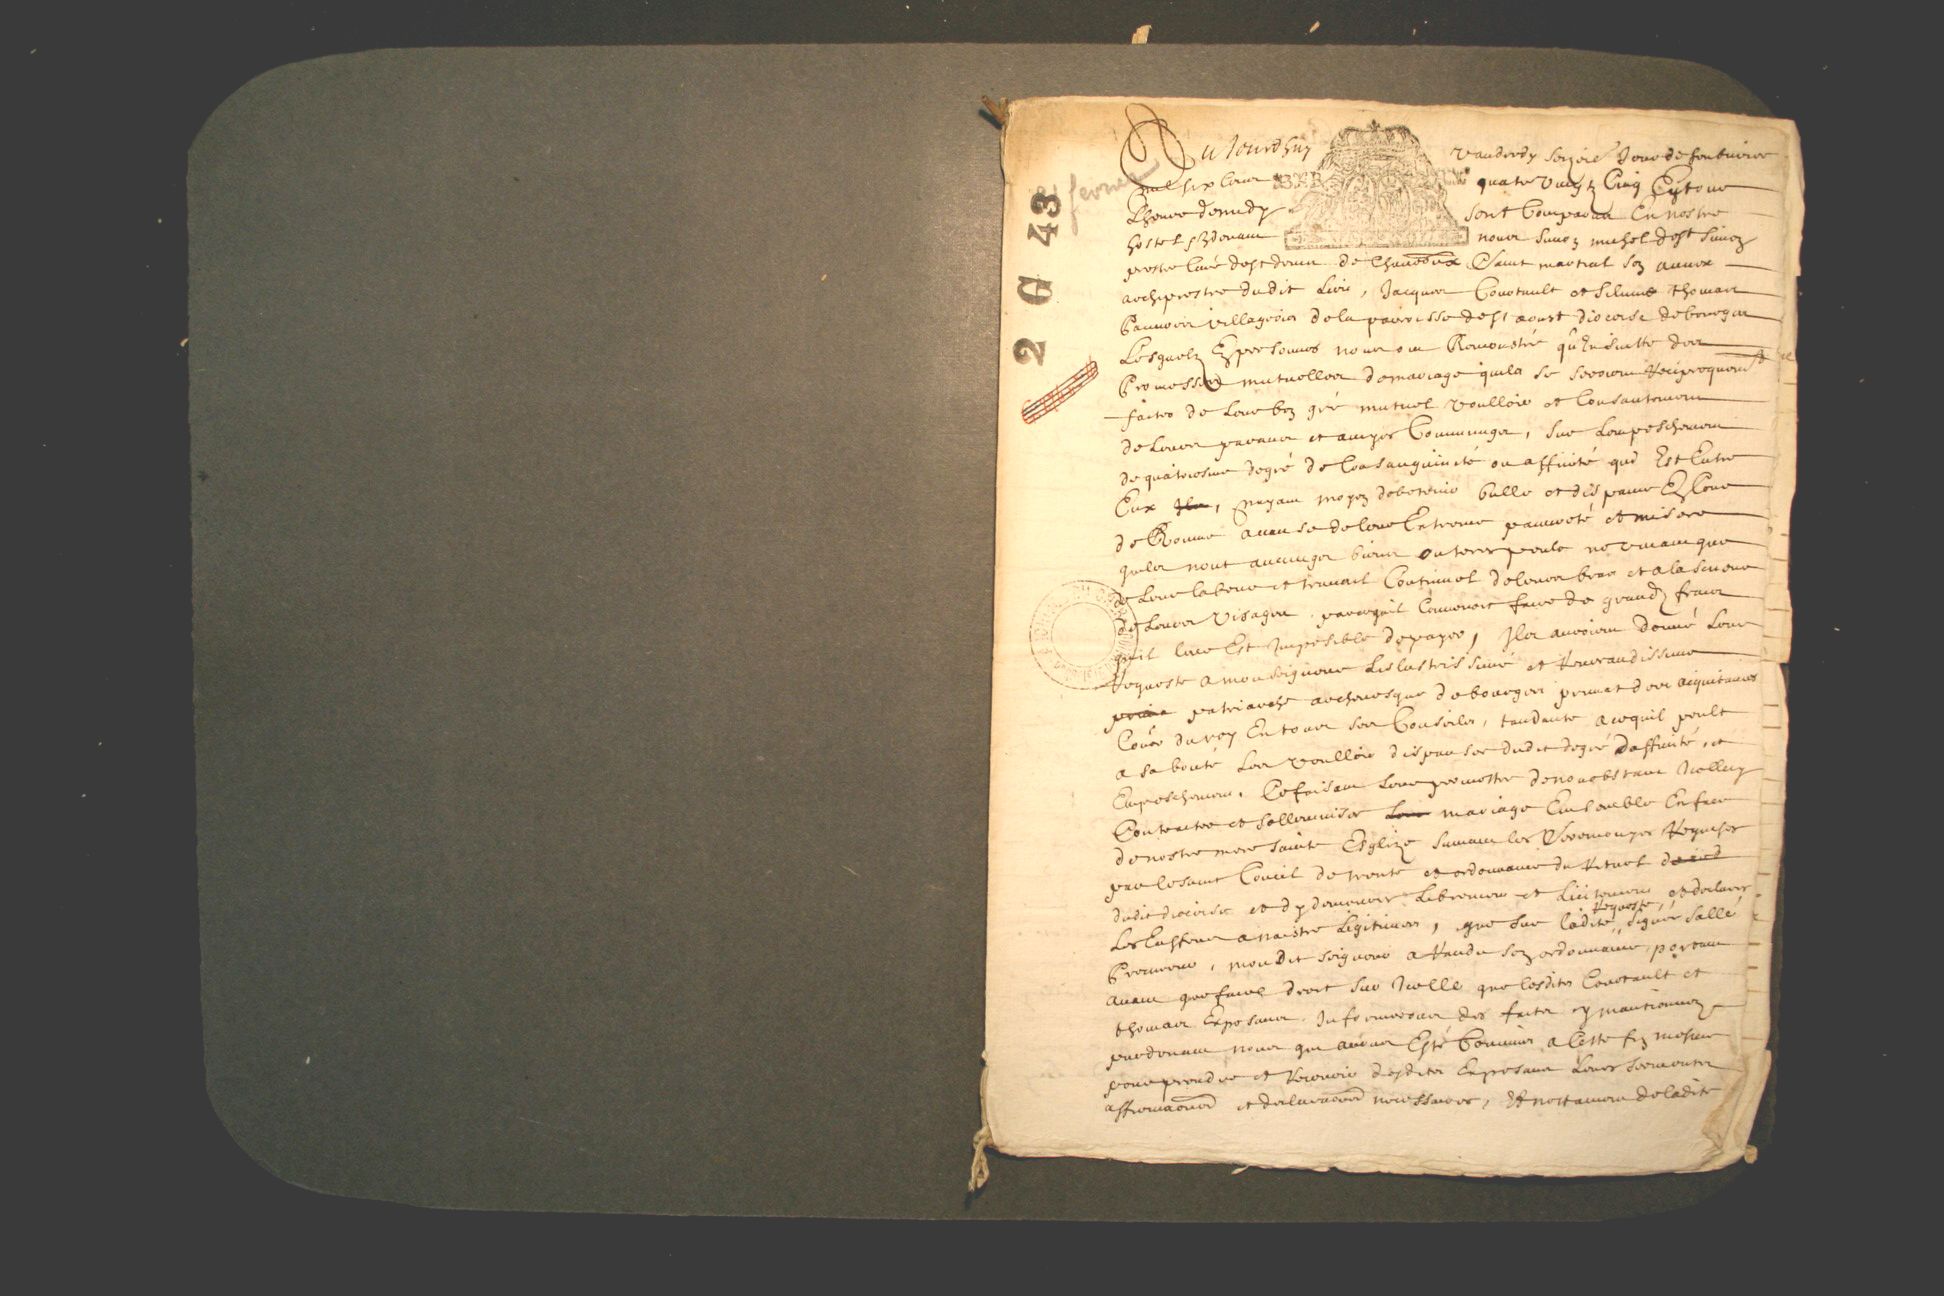 2 G 43
Aujourdhuy vandredy seziè Jour de feubvrier
mil six cens quatre vingtz Cinq Environ
Lheure de midy sont Comparus En nostre
hostel pardevant nous Simon michel dest Simon
prestre Curé dest denis de Chaudoux Saint martial son annex
archiprestre dudit Lieu, Jacques Coutault et Silvine thomas
Pauvres villageois de la parroisse de st aoust diocaise de bourges
Lesquelz Expersonnes nous ont Remonstré qu'Ensuitte des
Promesses mutuelles de mariage quils se seroient Reciproquemt
faites de Leur bon gré mutuel voulloir et Consantement
de Leurs parans et amys Communs, sur Lempeschement
de quatriesme degré de Consanguinité ou affinité qui Est Entre
Eux, nayans moyen dobtenir bulle et dispance En Cour
de Rome a cause de leur Extreme pauvreté et misere
quils nont aucungs biens ou terre seule ne vivans que
de Leur labeur et travail Continuel de leurs bras et a la sueur
de Leurs Visages, parcequil Conviendroit faire de grandz frais
quil leur Est Imposible de payer, Ilz auroient donné Leur
Requeste a monseigneur Lislustrissime et Reverandissime
patriarche archevesque de bourges primat des acquitaines
Coner du roy En tous ses Conseils, tendante a cequil peult
a sa bonté Les voulloir dispanser dudit degré daffinité, et
Empeschement, Ce faisant Leur permettre de nonobstant Icelluy
Contracter et sollemniser mariage Ensemble En face
de nostre mere sainte Esglize suivant les Ceremonyes Requises
par le saint Concil de trente et ordonnance du Rituel
dudit diocaise et dy demeurer Librement et Licitement, et declarer
Les Enfans a naistre Legitimes, que sur ladite Requeste, signée Sallé
Procureur, mondit seigneur a Randu son ordonnance, portant
avant que faire droit sur Icelle que lesdits Coutault et
thomas Exposans, Informeront des faits y mantionnez
pardevant nous qui avons Esté Commis a Cette fin mesme
pour prendre et Recevoir desdits Exposans Leurs sermentz
affirmaons et declaraons necessaires, Et nottament de ladite